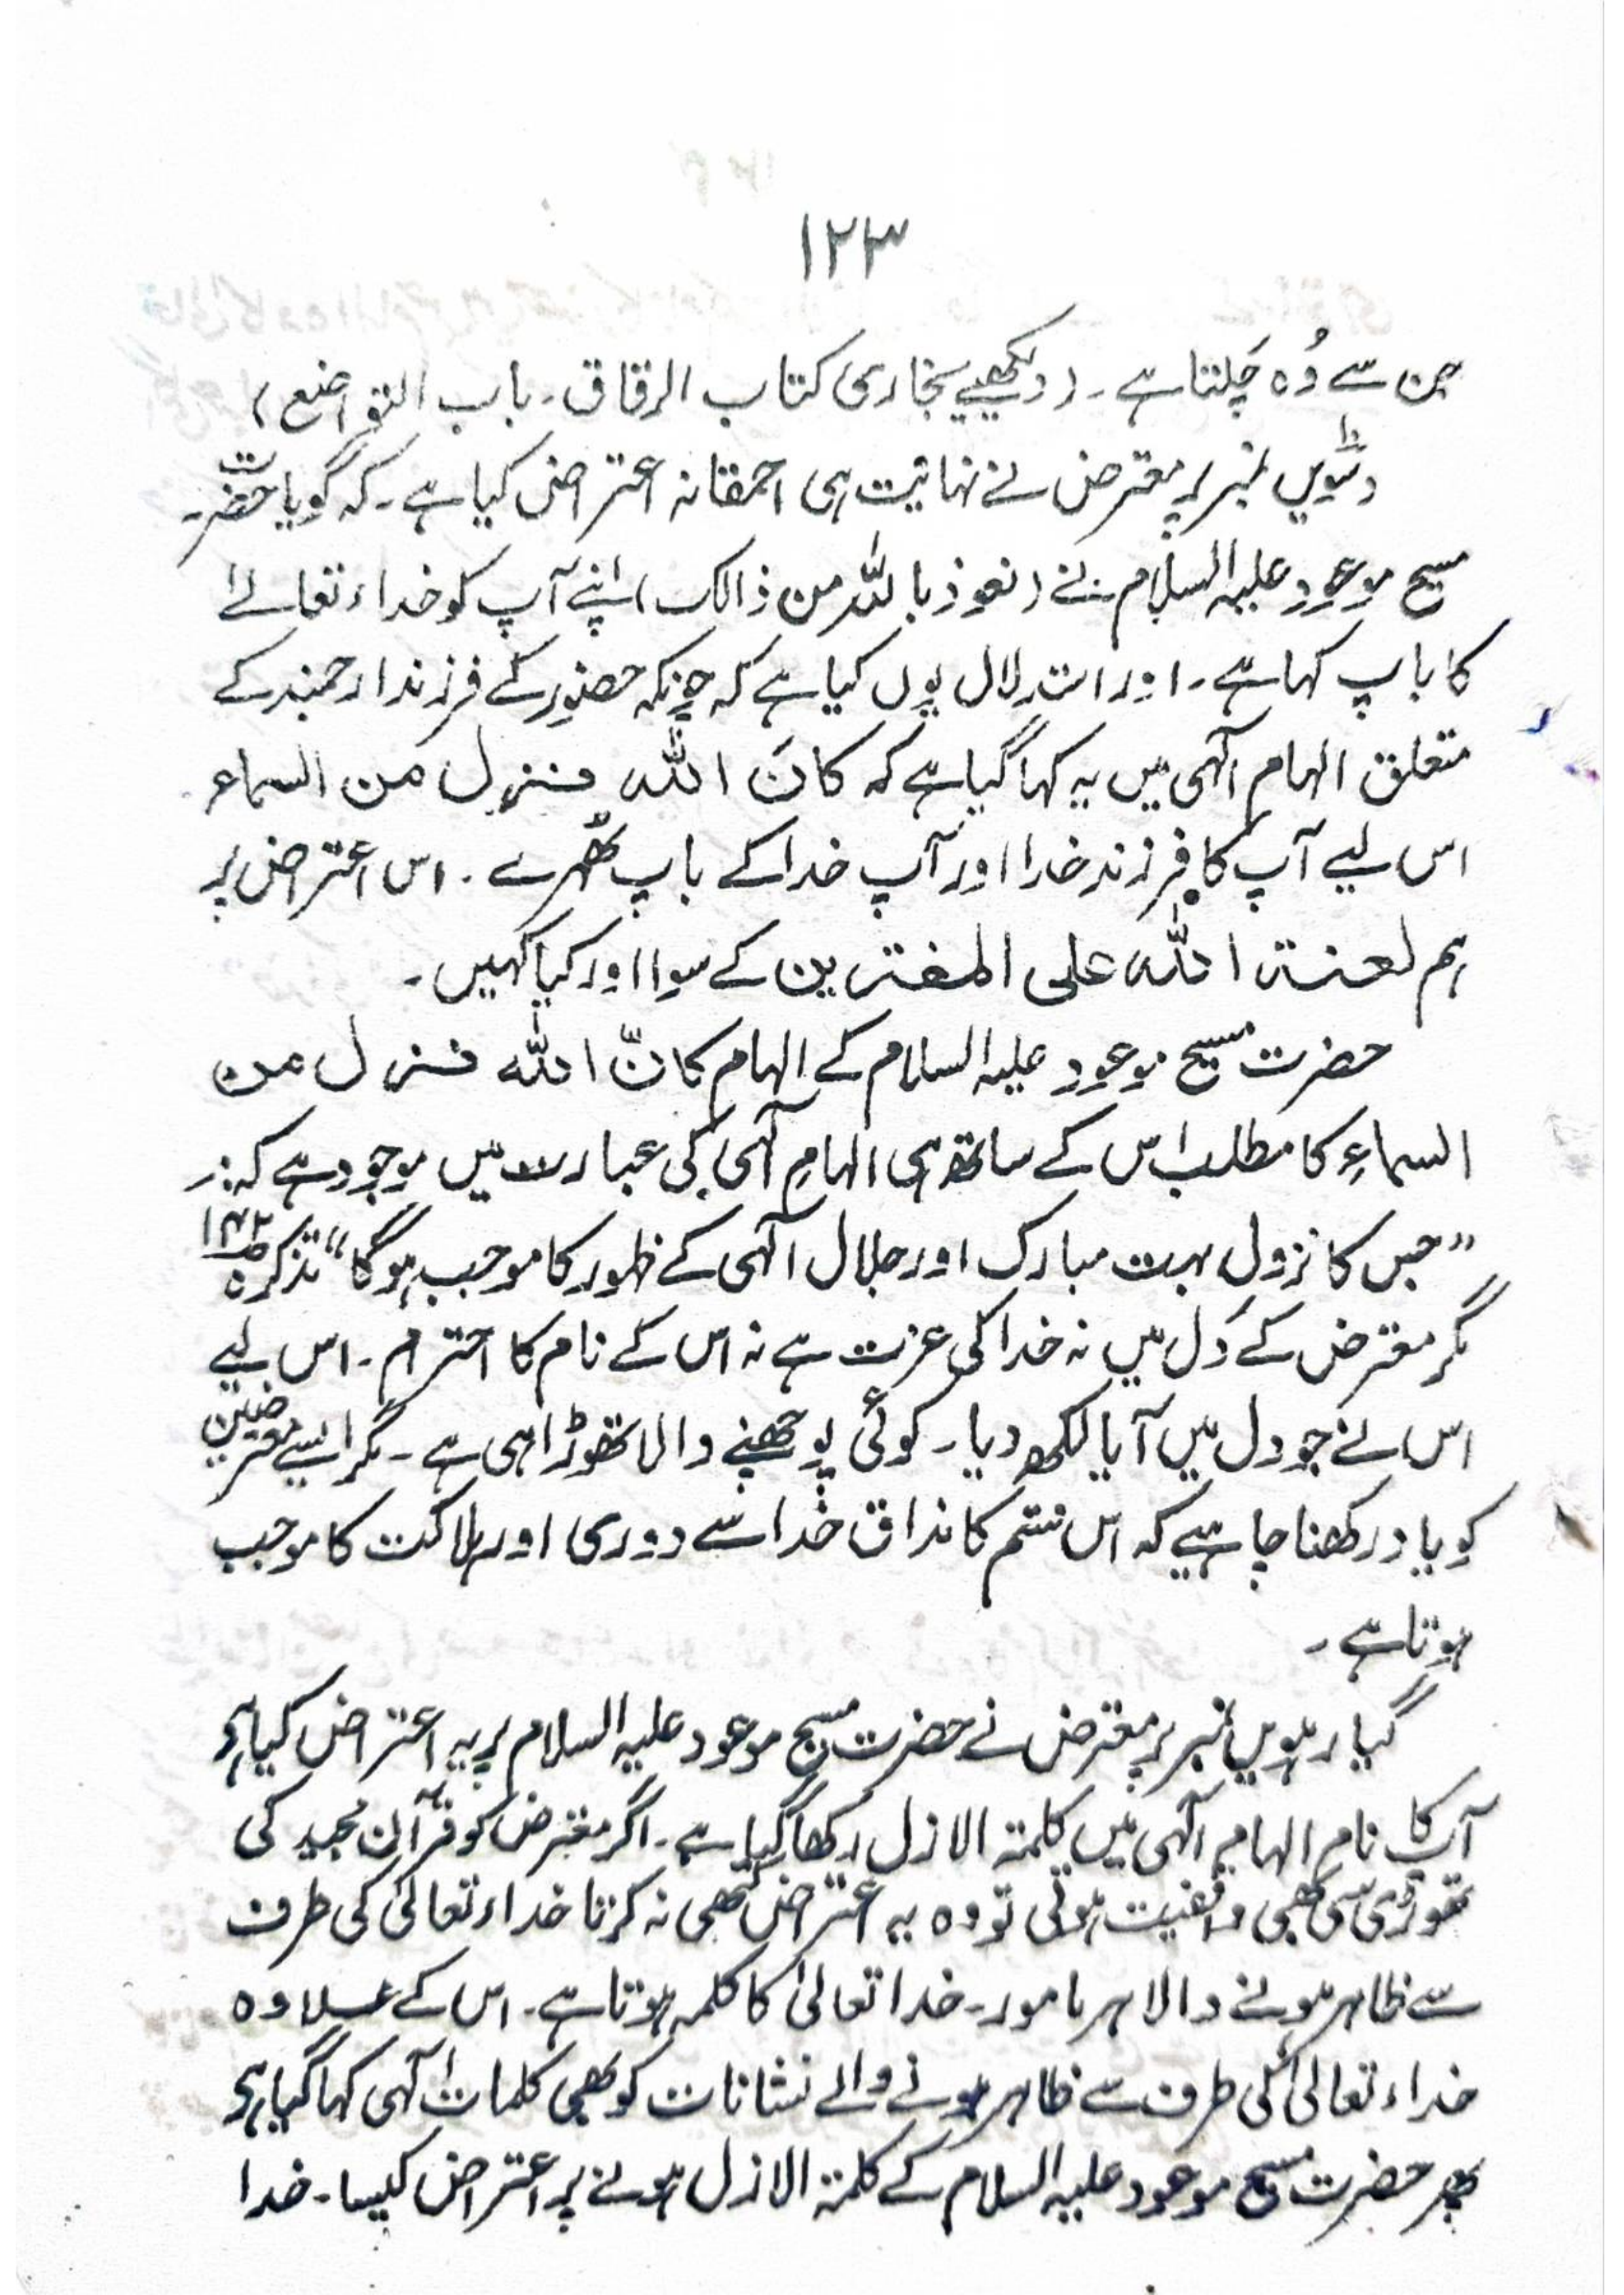 ۱۲۳
جن سے وُہ چَلتا ہے۔ (دیکھیے بخاری کتاب الرقاق۔ باب التواضع)
دسویں نمبر پر معترض نے نہائیت ہی احمقانہ اعتراض کیا ہے۔ کہ گویا حضرت
مسیح موعود علیہ السلام نے (نعوذ باللہ من ذالک) اپنے آپ کو خداء تعالےٰ
کا باپ کہا ہے۔ اور استدلال یوں کیا ہے کہ چونکہ حضور کے فرزند ارجمند کے
متعلق الہام الٰہی میں یہ کہا گیا ہے کہ کانَ اللہ نزل من السماء
اس لیے آپ کا فرزند خدا اور آپ خدا کے باپ ٹھہرے۔ اس اعتراض پر
ہم لعنۃ اللہ علی المفترین کے سوا اور کیا کہیں۔
حضرت مسیح موعود علیہ السلام کے الہام کانّ اللہ نزل من
السماءِ کا مطلب اس کے ساتھ ہی الہامِ الٰہی کی عبارت میں موجود ہے کہ:۔
”جس کا نزول بہت مبارک اور جلال الٰہی کے ظہور کا موجب ہوگا“ تذکرہ ص۱۴۲
مگر معترض کے دل میں نہ خدا کی عزت ہے نہ اس کے نام کا احترام۔ اس لیے
اس نے جو دل میں آیا لکھ دیا۔ کوئی پوچھنے والا تھوڑا ہی ہے۔ مگر ایسے معترضین
کو یاد رکھنا چاہیے کہ اس قسم کا مذاق خُدا سے دوری اور ہلاکت کا موجب
ہوتا ہے۔
گیارہویں نمبر پر معترض نے حضرت مسیح موعود علیہ السلام پر یہ اعتراض کیا ہے
آپ کا نام الہام الٰہی میں کلمۃ الازل رکھا گیا ہے۔ اگر معترض کو قرآن مجید کی
تھوڑی سی بھی واقفیت ہوتی تو وہ یہ اعتراض کبھی نہ کرتا خداء تعالیٰ کی طرف
سے ظاہر ہونے والا ہر مامور۔ خدا تعالیٰ کا کلمہ ہوتا ہے۔ اس کے علاوہ
خداء تعالیٰ کی طرف سے ظاہر ہونے والے نشانات کو بھی کلمات الٰہی کہا گیا ہے
پھر حضرت مسیح موعود علیہ السلام کے کلمۃ الازل ہونے پر اعتراض کیسا۔ خدا